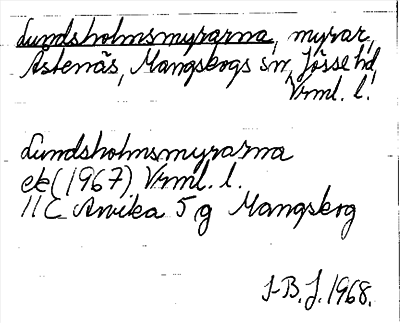 Lundsholmsmyrarna, myrar,
Åstenäs, Mangskogs sn, Jösse hd,
Vrml. l.
Lundsholmsmyrarna
ek (1967) Vrml. l.
11C Arvika 5 g Mangskog
I-B. J. 1968.